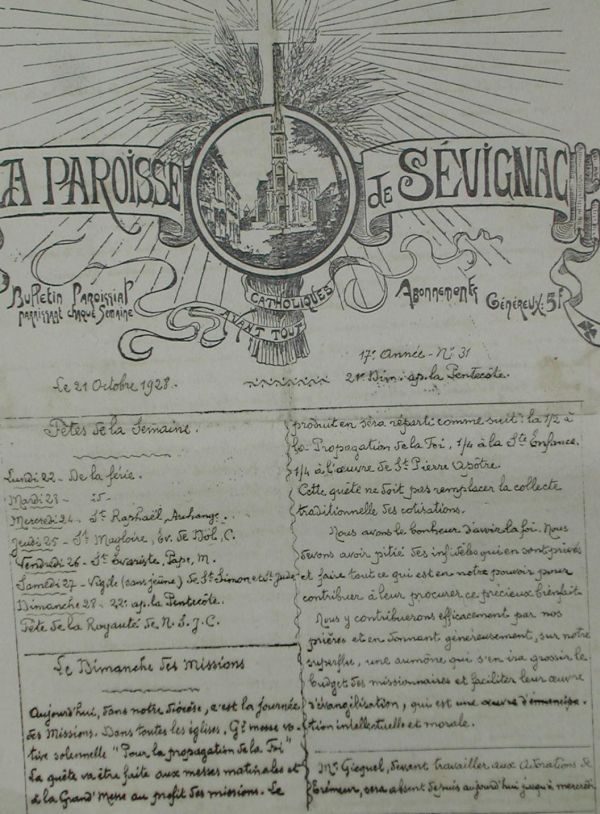 LA PAROISSE de SÉVIGNAC
Bulletin Paroissial
paraissant chaque Semaine
CATHOLIQUES
AVANT TOUT
Abonnements
Généreux: 5f
17e Année - No 31
Le 21 Octobre 1928.
21e Dim. ap. la Pentecôte.
Fêtes de la Semaine.
Lundi 22 - De la férie.
Mardi 23 - id.
Mercredi 24 - St Raphaël, Archange.
Jeudi 25 - St Magloire, Ev. de Dol, C.
Vendredi 26 - St Evariste, Pape, M.
Samedi 27 - Vigile (sans jeûne) de St Simon et St Jude
Dimanche 28 - 22e ap. la Pentecôte.
Fête de la Royauté de N. S. J. C.
Le Dimanche des Missions
Aujourd'hui, dans notre diocèse, c'est la journée
des Missions. Dans toutes les églises, Gd messe vo-
tive solennelle "Pour la propagation de la Foi"
La quête va être faite aux messes matinales et
à la Grand'Messe au profit des missions. Le
produit en sera réparti comme suit: la 1/2 à
la Propagation de la Foi, 1/4 à la Ste Enfance,
1/4 à l'œuvre de St Pierre Apôtre.
Cette quête ne doit pas remplacer la collecte
traditionnelle des cotisations.
Nous avons le bonheur d'avoir la foi. Nous
devons avoir pitié des infidèles qui en sont privés
et faire tout ce qui est en notre pouvoir pour
contribuer à leur procurer ce précieux bienfait.
Nous y contribuerons efficacement par nos
prières et en donnant généreusement, sur notre
superflu, une aumône, qui s'en ira grossir le
budget des missionnaires et faciliter leur œuvre
d'évangélisation, qui est une œuvre d'émancipa-
tion intellectuelle et morale.
Mr Gicquel, devant travailler aux Adorations de
Trémeur, sera absent depuis aujourd'hui jusqu'à mercredi